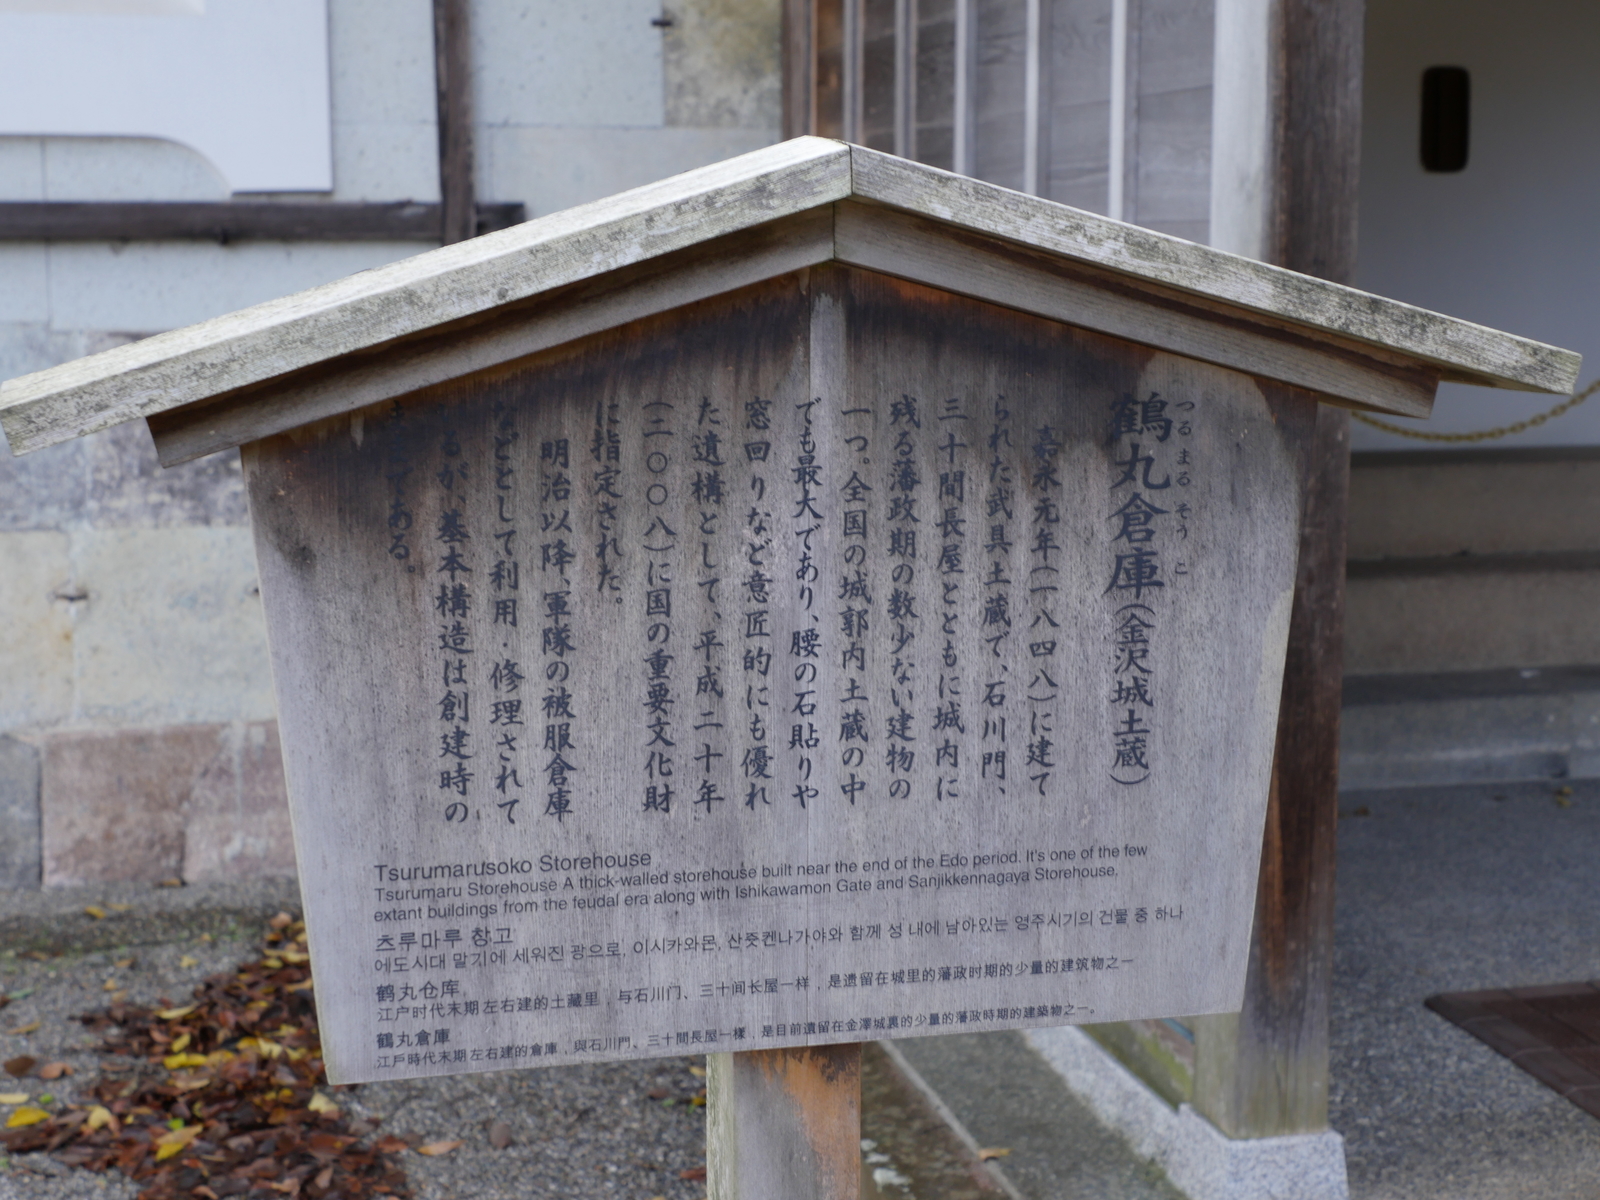 鶴丸倉庫(金沢城土蔵)
つるまるそうこ
嘉永元年(一八四八)に建て
られた武具土蔵で、石川門、
三十間長屋とともに城内に
残る藩政期の数少ない建物の
一つ。全国の城郭内土蔵の中
でも最大であり、腰の石貼りや
窓回りなど意匠的にも優れ
た遺構として、平成二十年
(二〇〇八)に国の重要文化財
に指定された。
明治以降、軍隊の被服倉庫
などとして利用・修理されて
いるが、基本構造は創建時の
ままである。
Tsurumarusoko Storehouse
Tsurumaru Storehouse A thick-walled storehouse built near the end of the Edo period. It's one of the few
extant buildings from the feudal era along with Ishikawamon Gate and Sanjikkennagaya Storehouse.
츠루마루 창고
에도시대 말기에 세워진 광으로, 이시카와몬, 산쥿켄나가야와 함께 성 내에 남아있는 영주시기의 건물 중 하나
鹤丸仓库
江户时代末期左右建的土藏里，与石川门、三十间长屋一样，是遗留在城里的藩政时期的少量的建筑物之一
鶴丸倉庫
江戶時代末期左右建的倉庫，與石川門、三十間長屋一樣，是目前遺留在金澤城裏的少量的藩政時期的建築物之一。